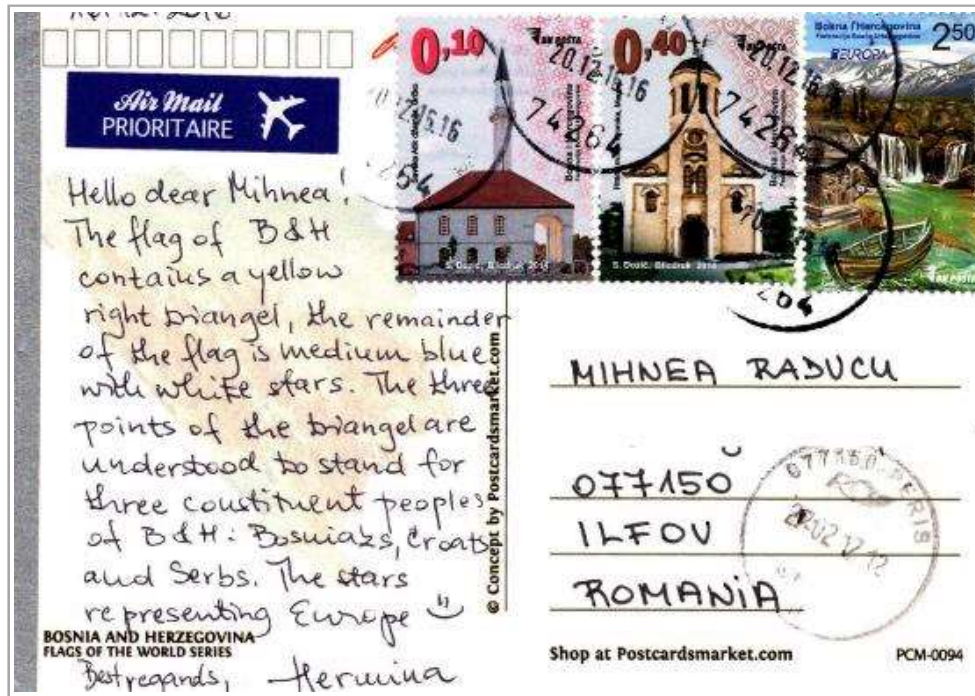 Air Mail
PRIORITAIRE
0,10
BH POŠTA
20.12.16.16
74264
0,40
BH POŠTA
20.12.16
74264
Bosna i Hercegovina
EUROPA
2,50
BH POŠTA
S. Dozić, Blicdruk 2016
S. Dozić, Blicdruk 2016
264
Hello dear Mihnea!
The flag of B&H
contains a yellow
right triangel, the remainder
of the flag is medium blue
with white stars. The three
points of the triangel are
understood to stand for
three constituent peoples
of B&H: Bosniaks, Croats
and Serbs. The stars
representing Europe
Best regards, Hermina
BOSNIA AND HERZEGOVINA
FLAGS OF THE WORLD SERIES
© Concept by Postcardsmarket.com
MIHNEA RADUCU
077150
ILFOV
ROMANIA
Shop at Postcardsmarket.com
PCM-0094